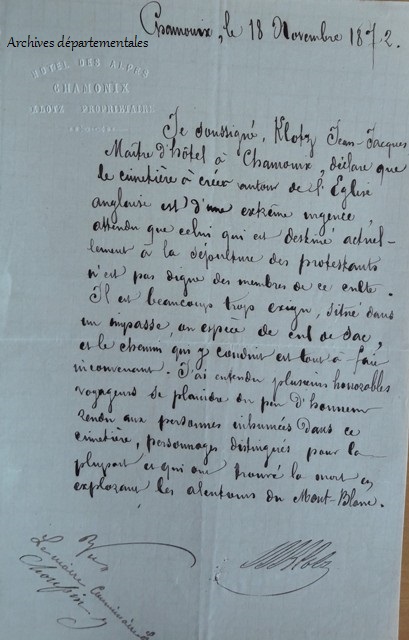 Archives départementales
Chamonix, le 18 Novembre 1872.
HOTEL DES ALPES
CHAMONIX
KLOTZ PROPRIETAIRE
Je soussigné, Klotz Jean-Jacques
Maître d'hôtel à Chamonix, déclare que
le cimetière à créer autour de l'Eglise
anglaise est d'une extrême urgence,
attendu que celui qui est destiné actuel-
lement à la sépulture des protestants
n'est pas digne des membres de ce culte.
Il est beaucoup trop exigu, situé dans
un impasse, un espèce de cul de sac,
et le chemin qui y conduit est tout à fait
inconvenant. J'ai entendu plusieurs honorables
voyageurs se plaindre du peu d'honneur
rendu aux personnes inhumées dans ce
cimetière, personnages distingués pour la
plupart et qui ont trouvé la mort en
explorant les alentours du Mont-Blanc.
Vu
Le maire